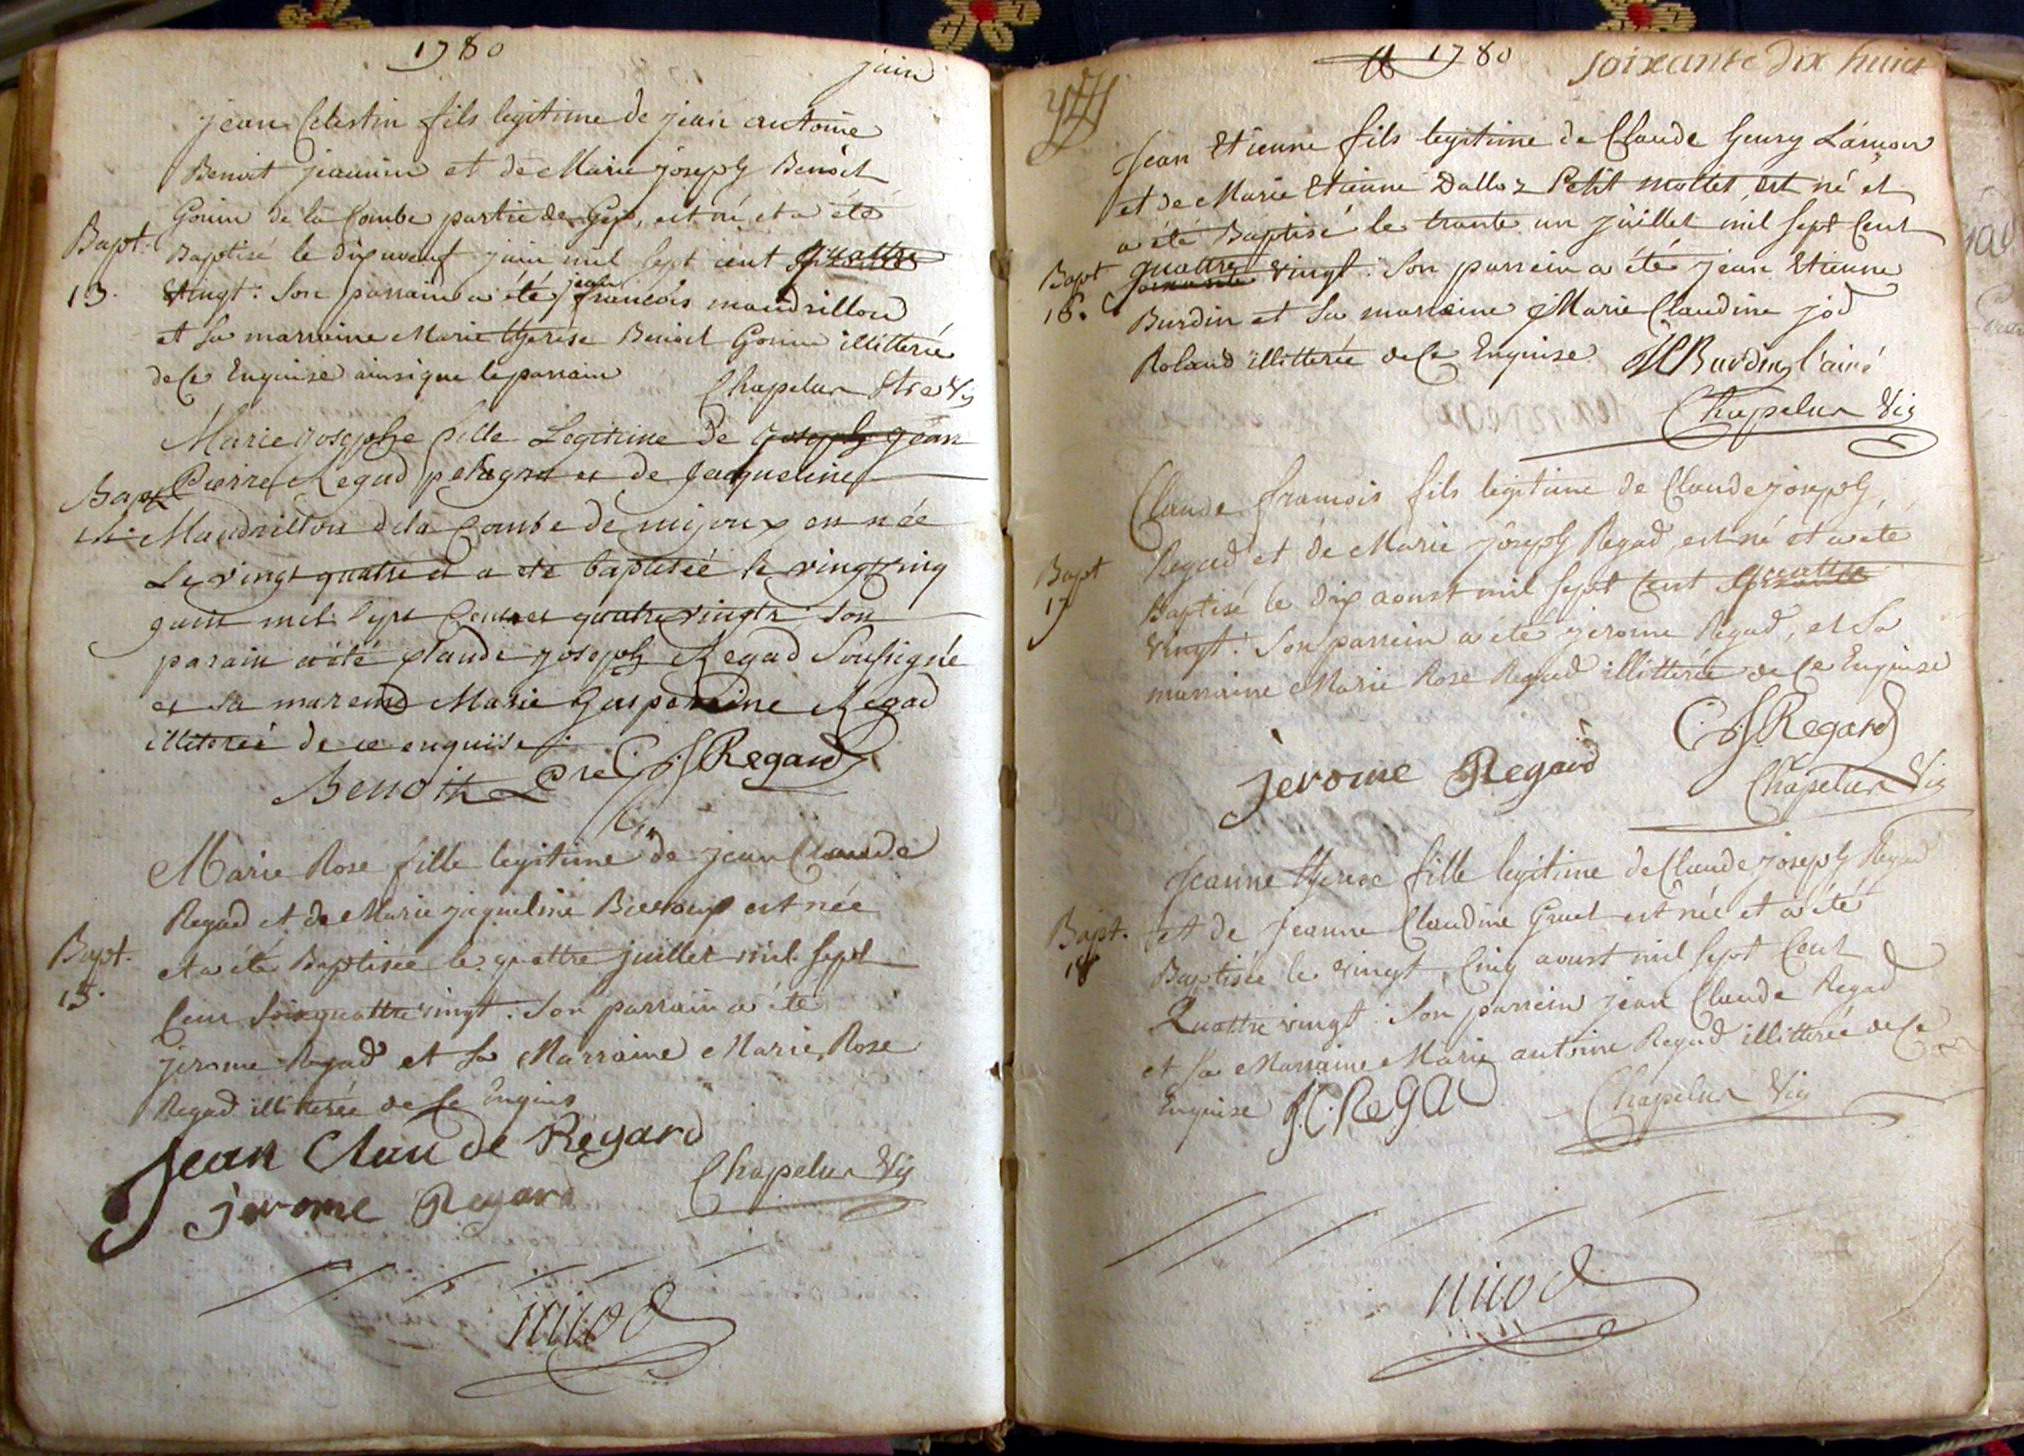 1780
juin
jean Celestin fils legitime de jean antoine
Benoit jeannin et de Marie joseph Benoit
Gonin de la Combe partie de Gex, est né et a été
Bapt. 13.
Baptisé le dix neuf juin mil sept cent quattre
vingt. Son parrain a été jean francois mandrillon
et sa marraine Marie therese Benoit Gonin illitterée
de ce Enquise ainsi que le parrain Chapelur
Marie josephe fille Legitime de joseph jean
Bapt
Pierre Regad pelegrin et de jacqueline
Mandrillon de la Combe de mijoux en née
Le vingt quatre et a été baptisée le vingt cinq
juin mil sept Cent et quatre vingts Son
parain a été Claude joseph Regad Soussigné
et sa mareine Marie Gasparine Regad
illiterée de ce enquise
Benoit Pre C. J Regard
Marie Rose fille legitime de jean Claude
Regad et de Marie jaqueline est née
Bapt. 15.
et a été Baptisée le quattre juillet mil sept
Cent quattre vingt. Son parrain a été
jerome Regad et sa Marraine Marie Rose
Regad illitterée de Ce Enquis
Jean Claude Regard
jerome Regard Chapelur Vic
nicod
1780
soixante dix huict
Jean Etienne fils legitime de Claude henry Lançon
et de Marie Etienne Dalloz Petit mottet, est né et
a été Baptisé le trante un juillet mil sept Cent
Bapt 16.
quattre vingt. Son parrein a été jean Etienne
Burdin et sa marreine Marie Claudine jod
Roland illitterée de Ce Enquise JE Burdin l'ainé
Chapelur Vic
Claude francois fils legitime de Claude joseph
Bapt 17
Regad et de Marie joseph Regad, est né et a été
Baptisé le dix aoust mil sept Cent quattre
vingt. Son parrein a été jerome Regad, et sa
marraine Marie Rose Regad illitterée de Ce Enquise
C. J Regard
jerome Regard Chapelur Vic
Jeanne therese fille legitime de Claude joseph Regad
Bapt. 18
et de jeanne Claudine Gruet est née et a été
Baptisée le vingt Cinq aoust mil sept Cent
Quattre vingt. Son parrein jean Claude Regad
et sa Marraine Marie antoine Regad illitterée de Ce
Enquise J. C. Regad Chapelur Vic
nicod